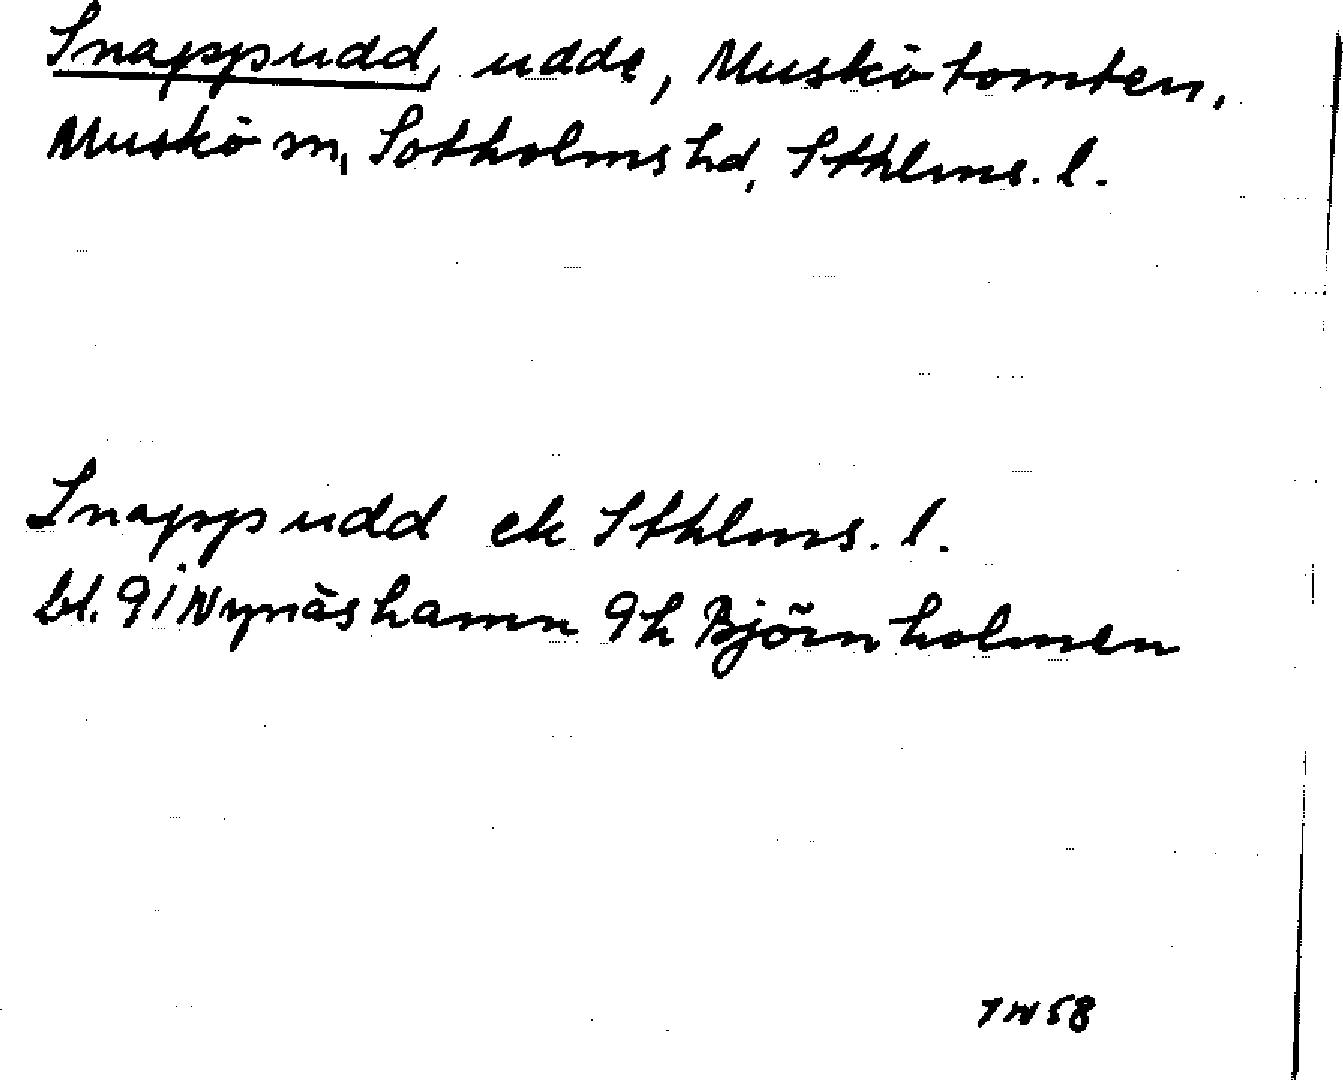 Snappudd, udde, Muskötomten,
Muskö sn, Sotholms hd, Sthlms. l.
Snappudd ek Sthlms. l.
bl. 9i Nynäshamn 9h Björnholmen
TW58